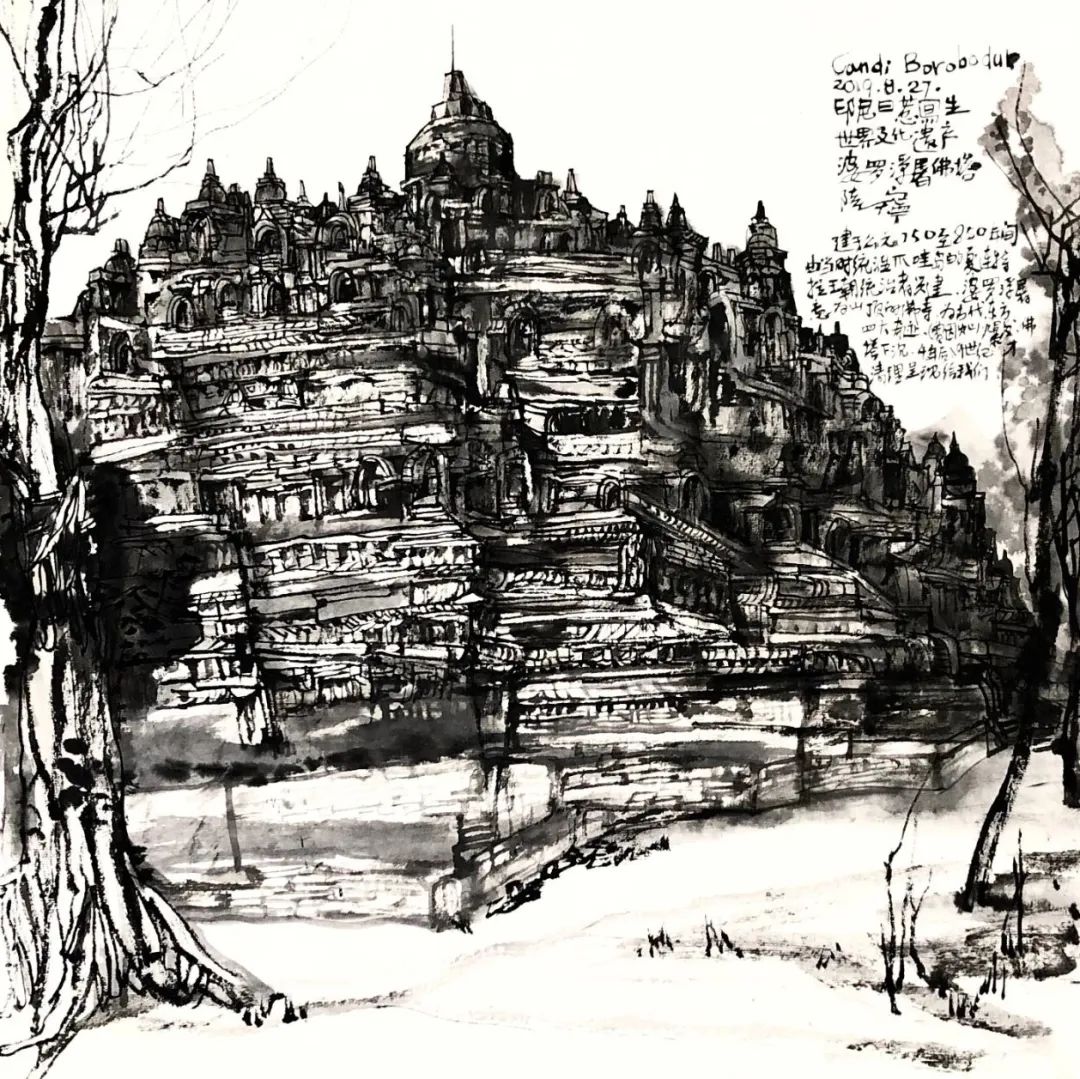 Candi Borobodur
2019.8.27.
印尼日惹写生
世界文化遗产
婆罗浮屠佛塔
陆宁
建于公元750至850年间
由当时统治爪哇岛的夏连特
拉王朝统治者兴建 婆罗浮屠
意为山顶的佛寺 为古代东方
四大奇迹 后因火山爆发 佛
塔下沉 19世纪才
清理呈现给我们